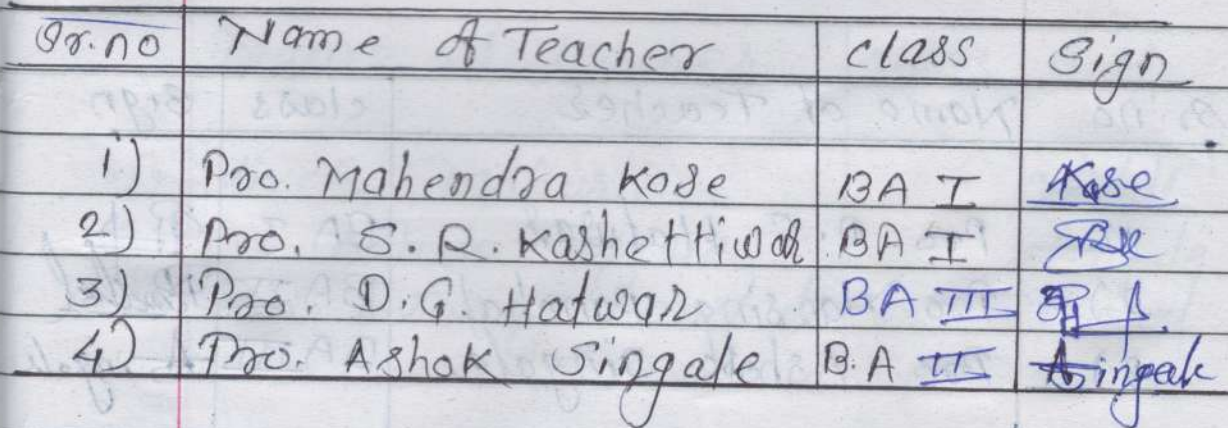 Sr.no Name of Teacher class Sign
1) Pro. Mahendra Kose BA I Kose
2) Pro. S. R. Kashettiwar BA I
3) Pro. D. G. Hatwar BA III
4) Pro. Ashok Singale B.A II ASingale